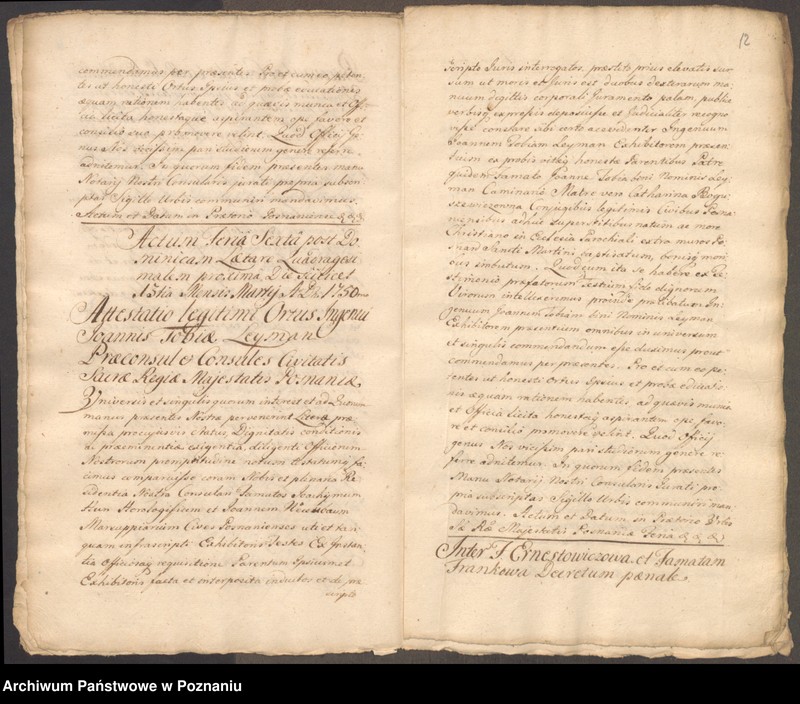 commendamus per præsentes. Pro et cum eo, peten-
tes ut honesti Ortus Ipsius et probæ educationis
æquam rationem habentes ad quævis munia et Offi-
cia licita honestaque aspirantem ope favore et
consilio suo promovere velint. Quod Officij Ge-
nus Nos vicissim pari studiorum genere referre
adnitemur. In quorum fidem præsentes manu
Notarij Nostri Consularis jurati propria subscri-
ptas Sigillo Urbis communiri mandavimus.
Actum et Datum in Prætorio Posnaniensi &c &c
Actum Feriâ Sextâ post Do-
minicam Lætare Quadragesi-
malem proximâ Die scilicet
13tia Mensis Martij A. D. 1750
Attestatio legitimi Ortus Ingenui
Joannis Tobiæ Leyman
Præconsul et Consules Civitatis
Sacræ Regiæ Majestatis Posnaniæ
Universis et singulis quorum interest et ad quorum
manus præsentes Nostræ pervenerint Literæ præ-
missa procujusvis status Dignitatis conditionis
ac præeminentiæ exigentia, diligenti Officiorum
Nostrorum promptitudine notum testatumq fa-
cimus comparuisse coram Nobis et plenaria Re-
sidentia Nostra Consulari Famatos Joachimum
Kun Horologificem et Joannem
Marcuppiarium Cives Posnanienses uti et tan-
quam infrascripti Exhibitoris Testes Ex Instan-
tia Officiosaq requisitione Parentum Ipsiusmet
Exhibitoris facta et interposita inductos et de præ
scripto
12
scripto Juris interrogatos, præstito prius elevatis sur-
sum ut moris et Juris est duobus dexterarum ma-
nuum digitis corporali Juramento palam, publice
verbisq expressis deposuisse et Judicialiter recogno-
visse constare sibi certo ac evidenter Ingenuum
Joannem Tobiam Leyman Exhibitorem præsen-
tium ex probis vitæq honestæ Parentibus Patre
quidem Famato Joanne Tobia boni Nominis Ley-
man Caminario Matre vero Catharina Bogu-
szewiczowna Conjugibus legitimis Civibus Posna-
niensibus adhuc superstitibus natum ac more
Christiano in Ecclesia Parochiali extra muros Pos-
naniæ Sancti Martini baptisatum, bonisq mori-
bus imbutum. Quod cum ita se habere ex Te-
stimonio præfatorum Testium fide dignorum
Virorum intellexerimus proinde prætitulatum In-
genuum Joannem Tobiam boni Nominis Leyman
Exhibitorem præsentium omnibus in universum
et singulis commendandum esse duximus prout
commendamus per præsentes. Pro et cum eo pe-
tentes ut honesti Ortus Ipsius et probæ educatio-
nis æquam rationem habentes, ad quævis munia
et Officia licita honestaq aspirantem ope favo-
re et consilio promovere velint. Quod Officij
genus Nos vicissim pari studiorum genere re-
ferre adnitemur. In quorum fidem præsentes
Manu Notarij Nostri Consularis Jurati pro-
pria subscriptas Sigillo Urbis communiri man-
davimus. Actum et Datum in Prætorio Urbis
Sæ Ræ Majestatis Posnaniæ Feria &c &c &c
Inter F. Ernestowiczowa et Famatam
Frankowa Decretum pænale.
Archiwum Państwowe w Poznaniu